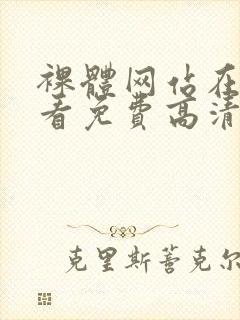 裸體网佔在
看免费高清
克里斯蒉克尔